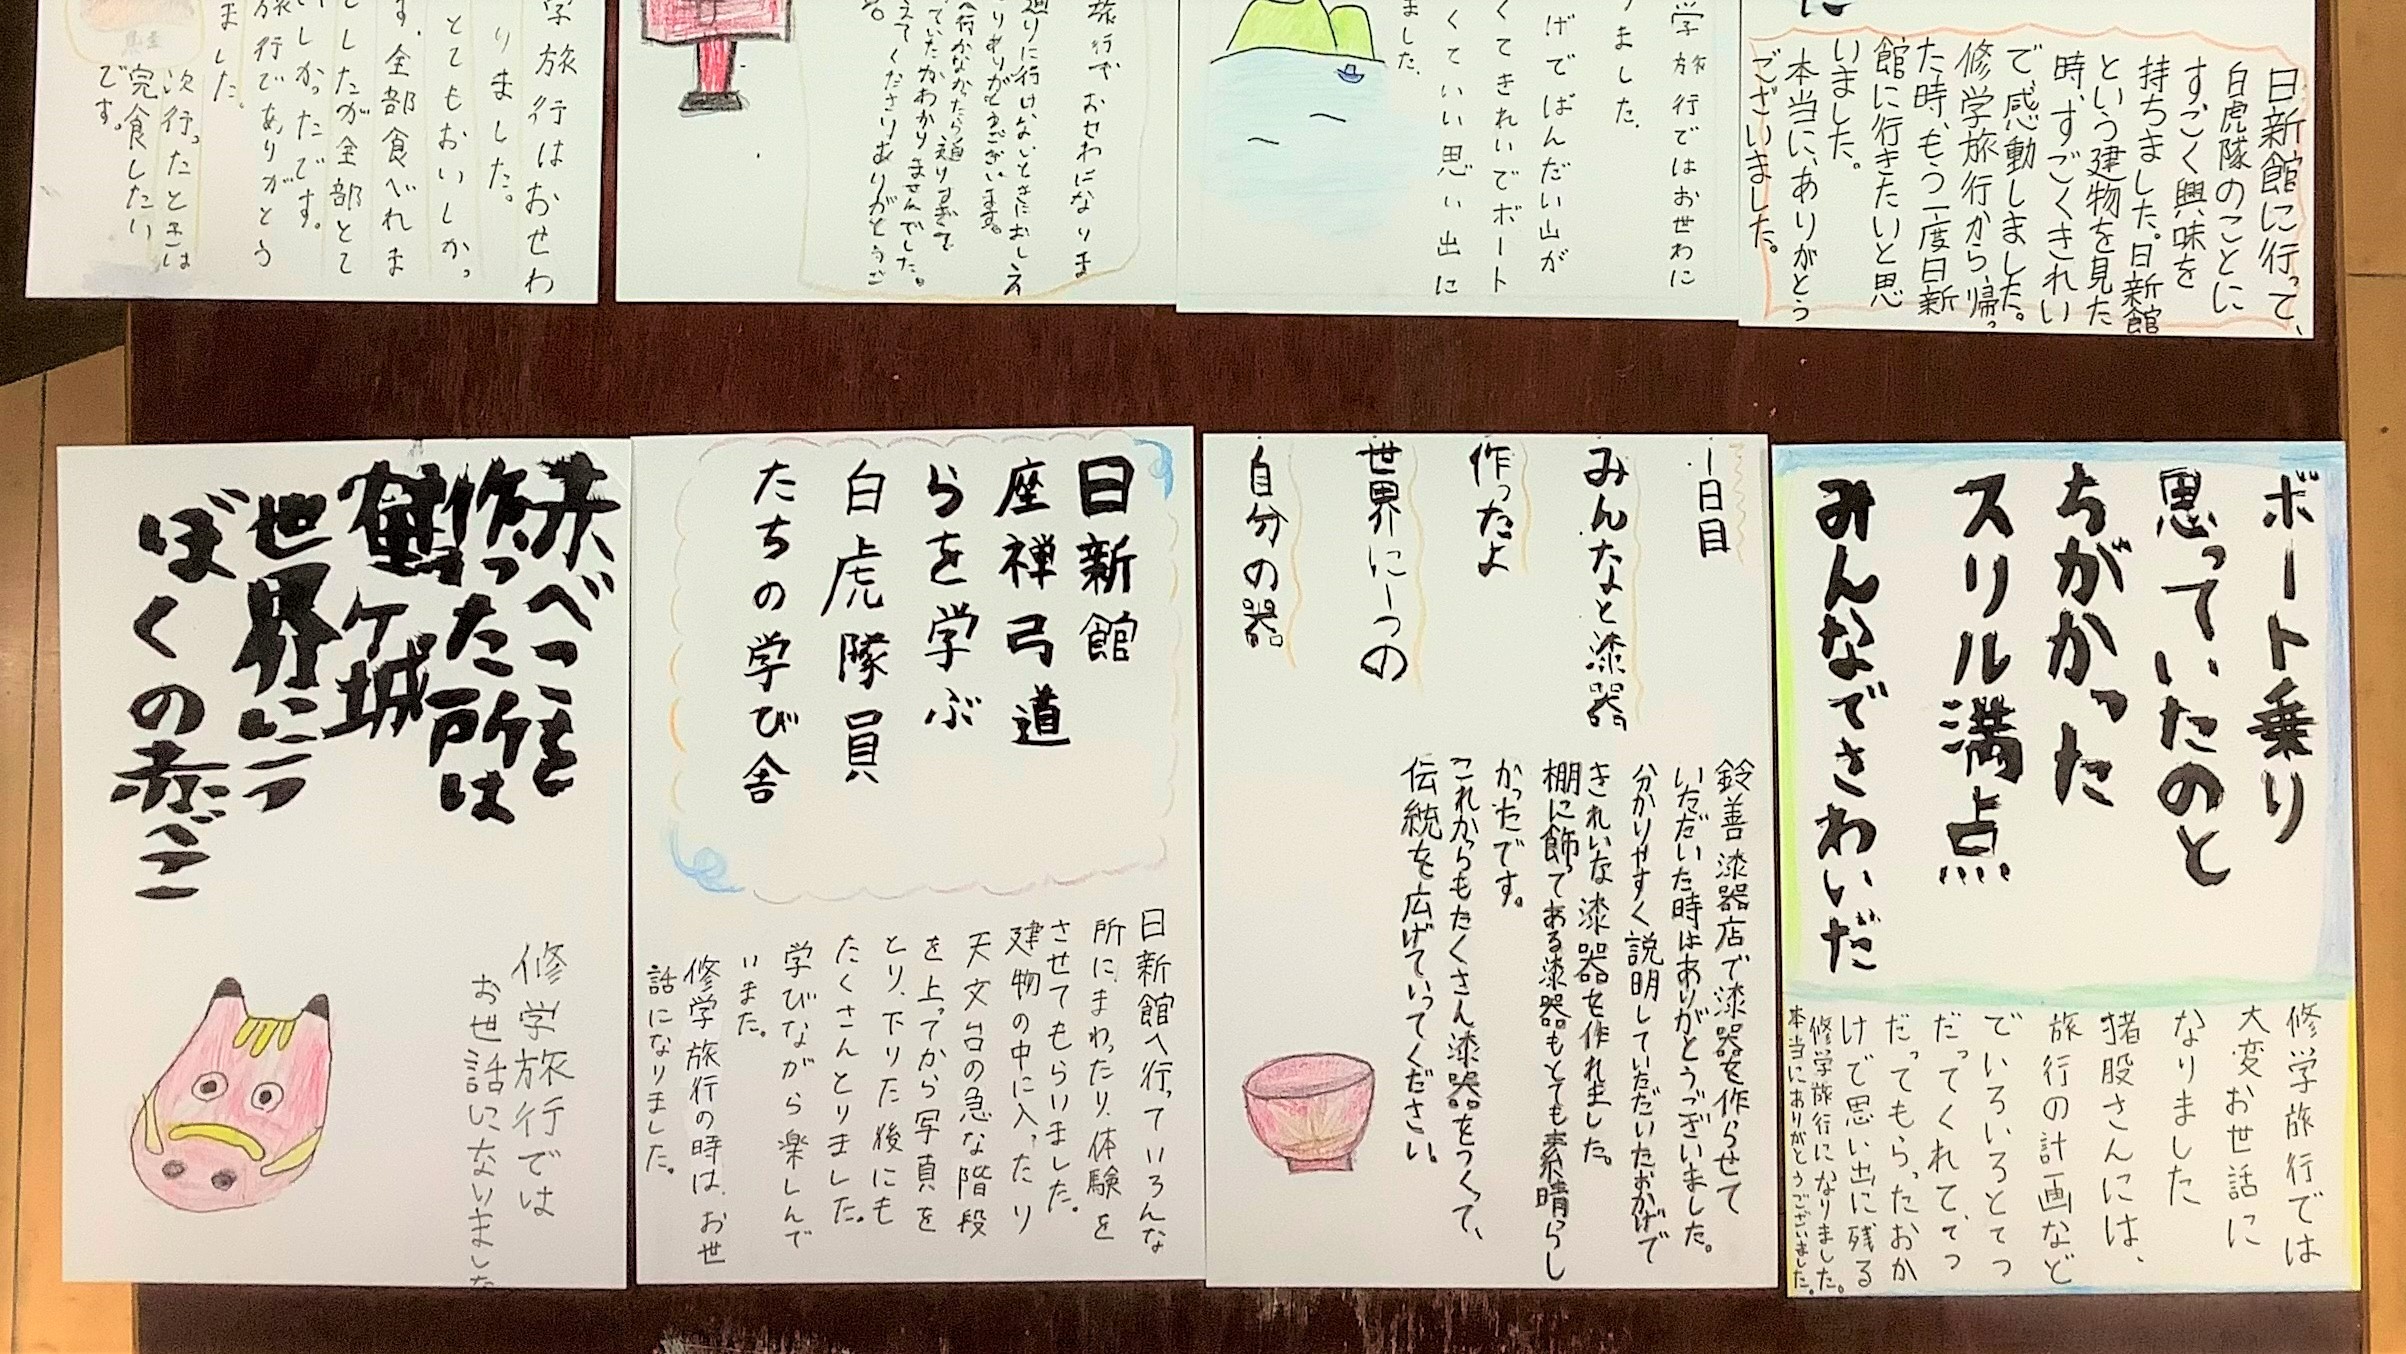 日新館に行って、
白虎隊のことに
すごく興味を
持ちました。日新館
という建物を見た
時、すごくきれい
で、感動しました。
修学旅行から、帰っ
た時、もう一度日新
館に行きたいと思
いました。
本当に、ありがとう
ございました。
学旅行ではお世わに
りました。
げでばんだい山が
くてきれいでボート
くていい思い出に
ました。
旅行でおせわになりま
道りに行けないときにおしえ
ありがとうございます。
へ行かなかったら通りすぎて
ていたかわかりませんでした。
えてくださりありがとうご
学旅行はおせわ
りました。
とてもおいしかっ
す。全部食べれま
したが全部とて
いしかったです。
旅行でありがとう
ました。
次行ったときは
完食したい
です。
ボート乗り
思っていたのと
ちがかった
スリル満点
みんなでさわいだ
修学旅行では
大変お世話に
なりました
猪股さんには、
旅行の計画など
でいろいろとてつ
だってくれて、てつ
だってもらったおか
けで思い出に残る
修学旅行になりました。
本当にありがとうございました。
一日目
みんなと漆器
作ったよ
世界に一つの
自分の器
鈴善漆器店で漆器を作らせて
いただいた時はありがとうございました。
分かりやすく説明していただいたおかげで
きれいな漆器を作れました。
棚に飾ってある漆器もとても素晴らし
かったです。
これからもたくさん漆器をつくって、
伝統を広げていってください。
日新館
座禅弓道
らを学ぶ
白虎隊員
たちの学び舎
日新館へ行っていろんな
所に、まわったり、体験を
させてもらいました。
建物の中に入ったり
天文台の急な階段
を上ってから写真を
とり、下りた後にも
たくさんとりました。
学びながら楽しんで
いました。
修学旅行の時は、お世
話になりました。
赤べこを
作った所は
鶴ケ城
世界に一つ
ぼくの赤べこ
修学旅行では
お世話にないました